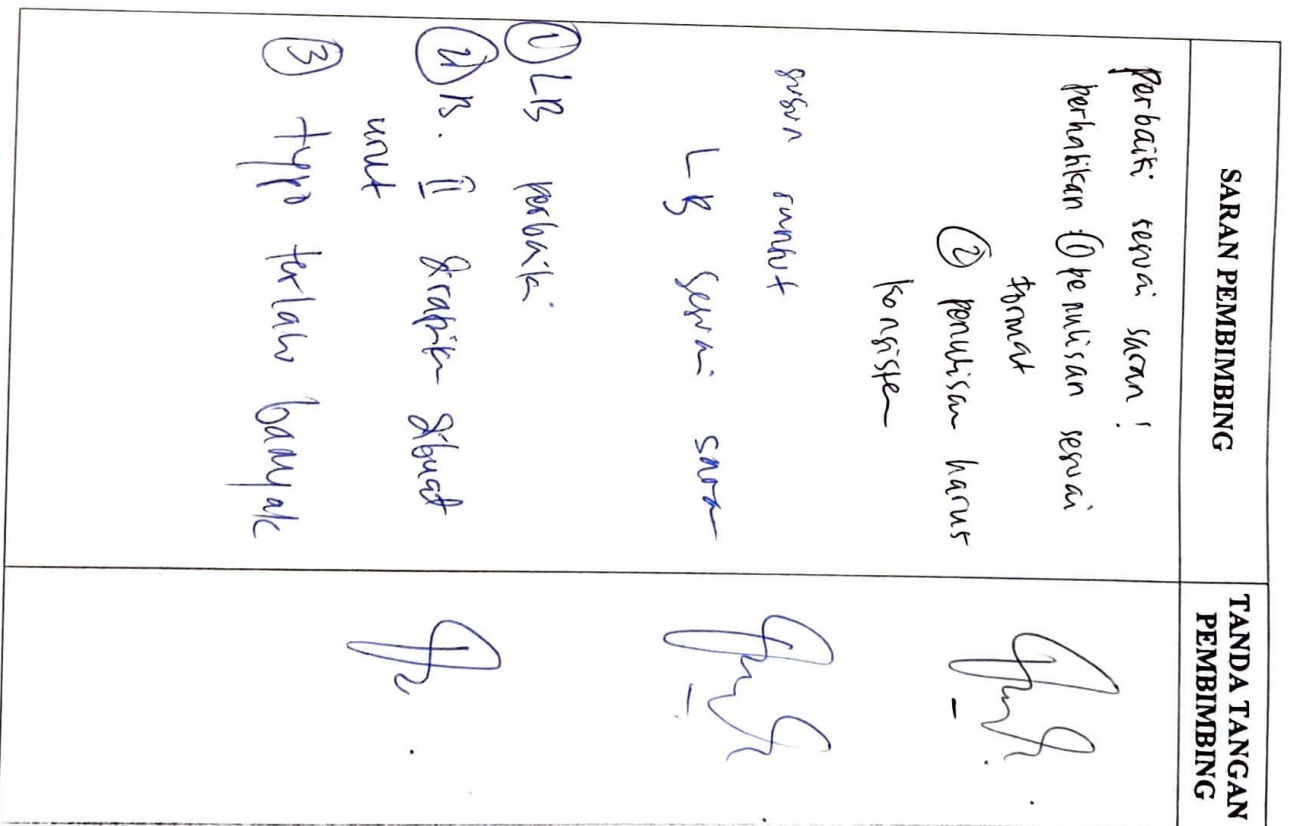 SARAN PEMBIMBING
TANDA TANGAN
PEMBIMBING
Perbaiki sesuai saran!
perhatikan : ① penulisan sesuai
format
② penulisan harus
konsisten
susun runtut
LB sesuai saran
① LB perbaiki
② B. II dirapikan dibuat
urut
③ typo terlalu banyak